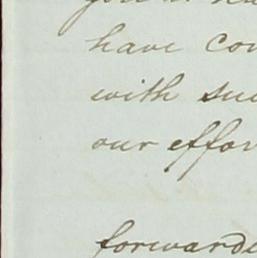 have con
with suc
our effor
forwarde